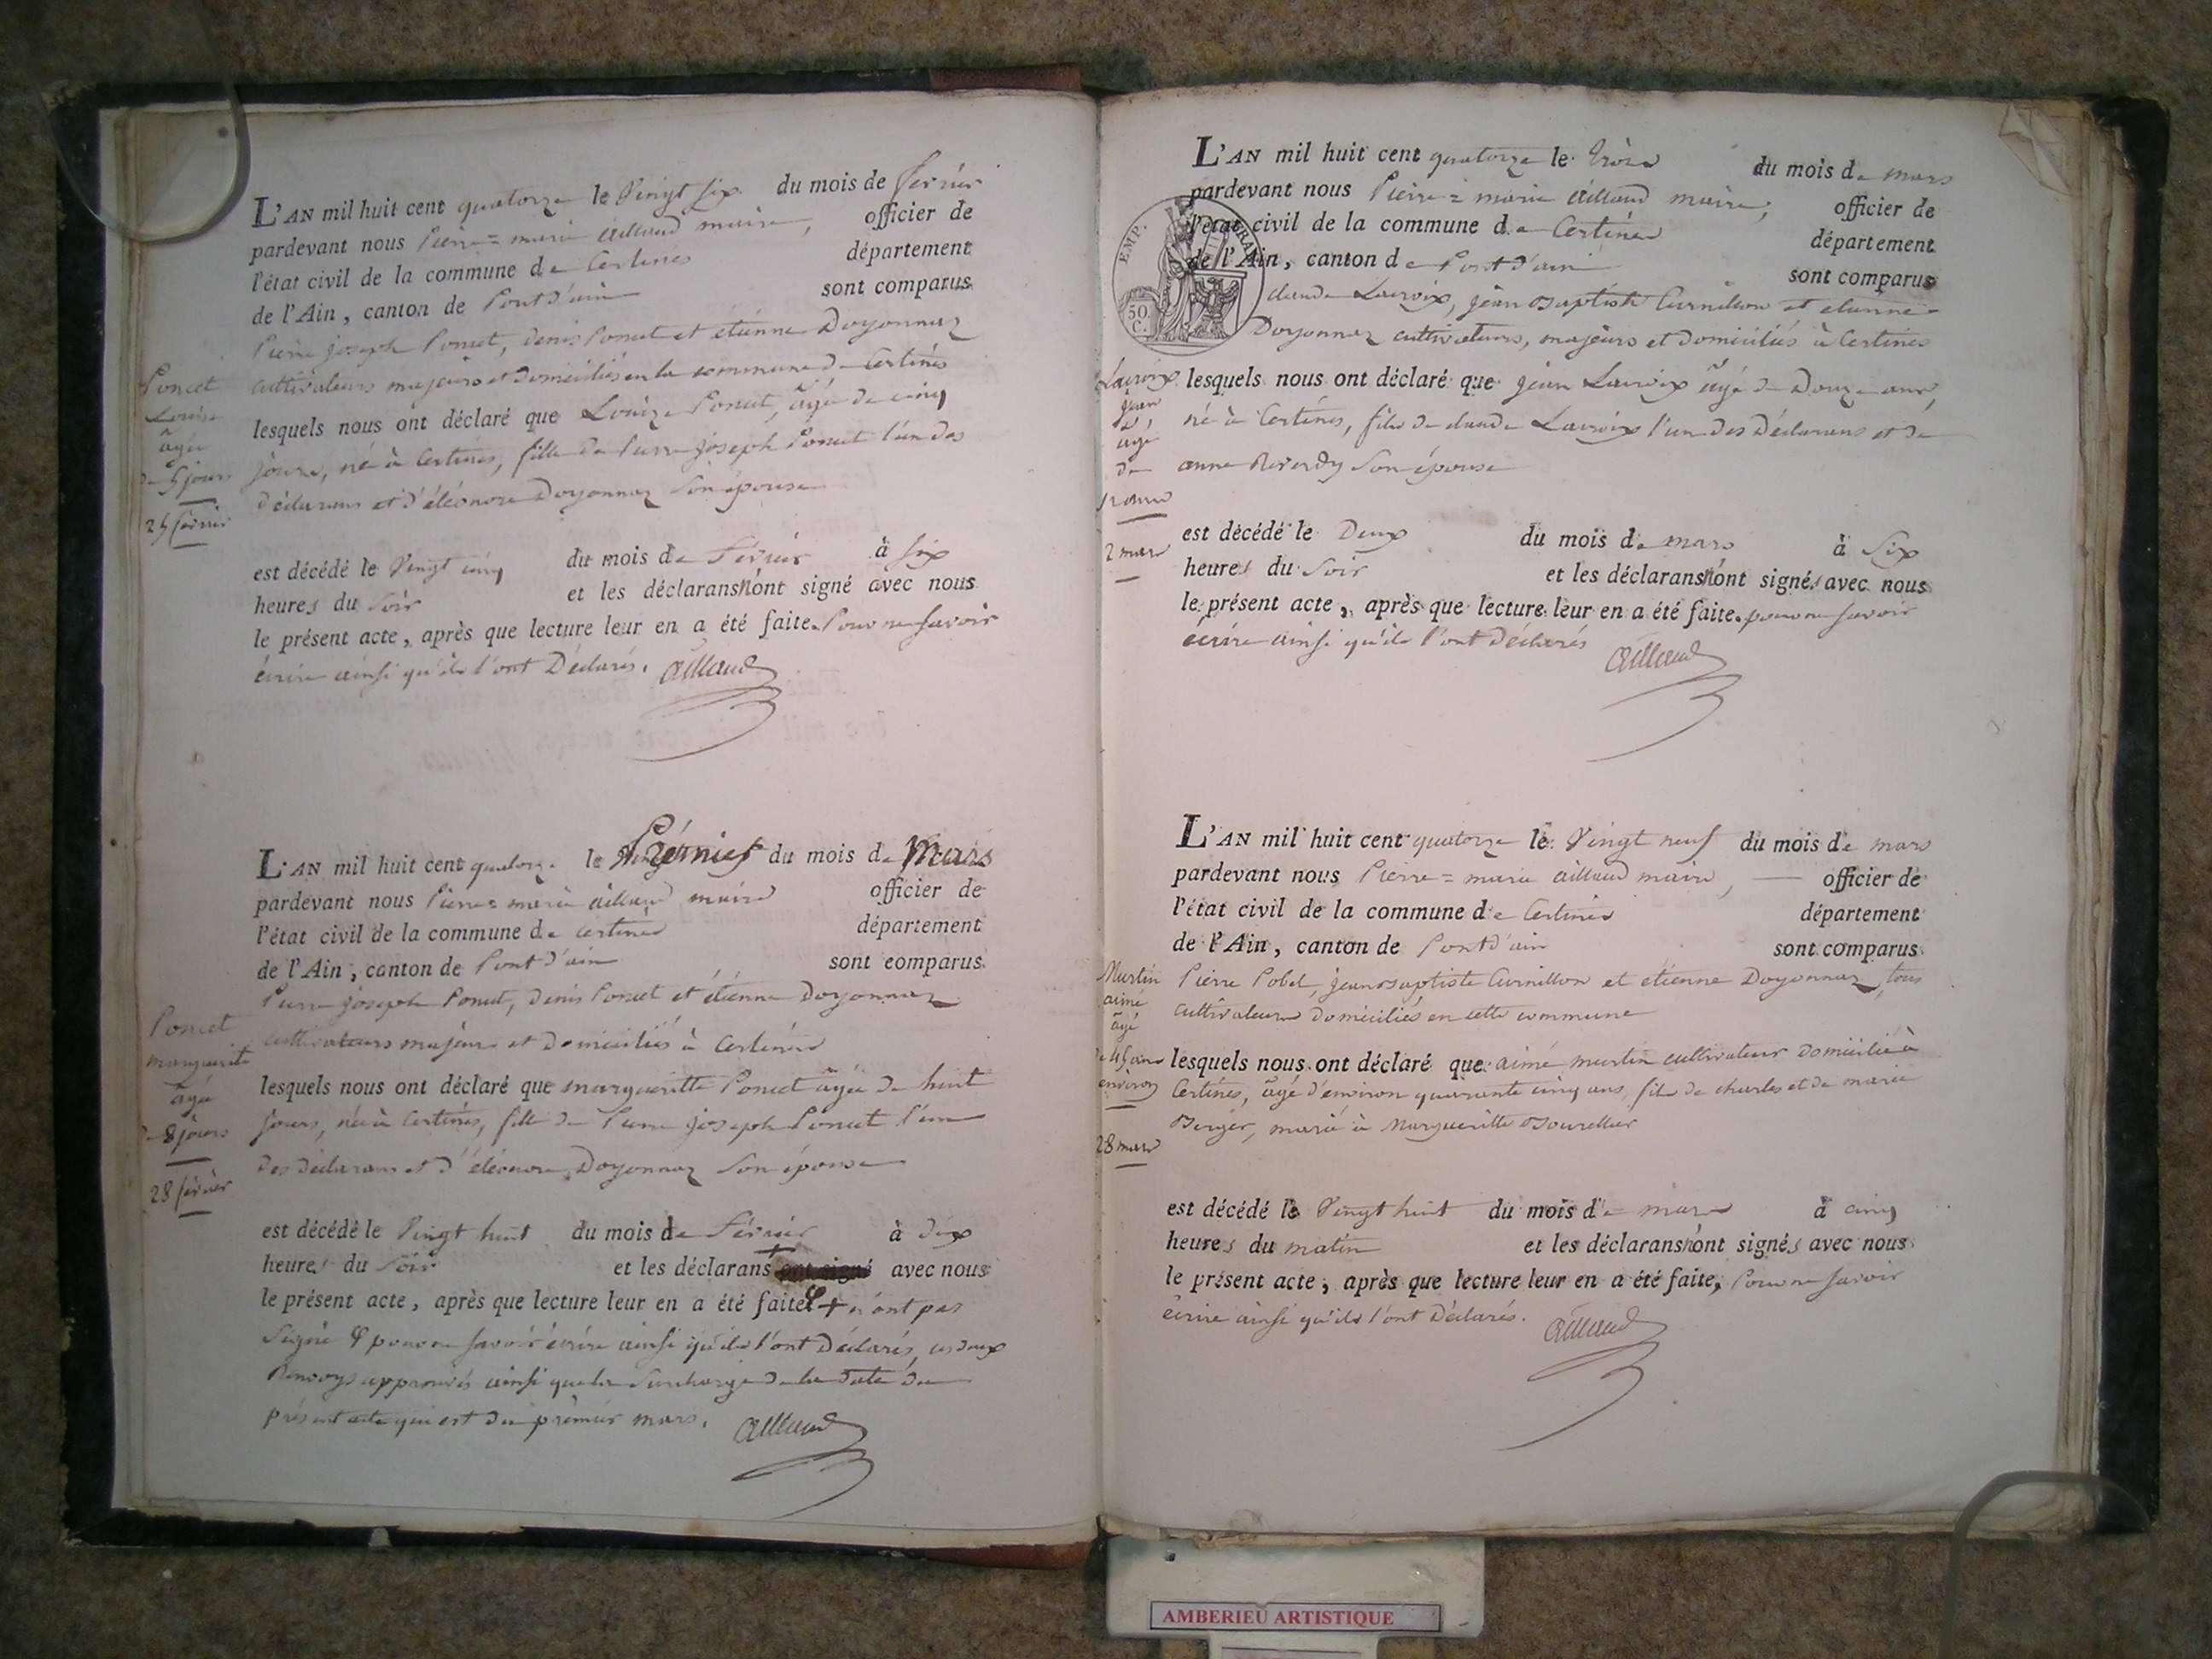 L'AN mil huit cent quatorze le Vingt six du mois de février
pardevant nous Pierre=marie aillaud maire, officier de
l'état civil de la commune de Certines département
de l'Ain, canton de Pont d'ain sont comparus
Pierre joseph Poncet, denis Poncet et etienne Doyonnaz
cultivateurs majeurs et domiciliés en la commune de Certines
lesquels nous ont déclaré que Louize Poncet, âgée de cinq
jours, né à Certines, fille de Pierre joseph Poncet l'un des
déclarans et d'éléonore Doyonnaz son épouse
est décédé le Vingt cinq du mois de Février à six
heures du soir et les déclarans n'ont signé avec nous
le présent acte, après que lecture leur en a été faite. Pour ne savoir
écrire ainsi qu'ils l'ont Déclarés. aillaud
Poncet
Louise
âgée
de 5 jours
25 février
L'AN mil huit cent quatorze le Prémier du mois de Mars
pardevant nous Pierre=marie aillaud maire officier de
l'état civil de la commune de Certines département
de l'Ain, canton de Pont d'ain sont comparus
Pierre joseph Poncet, denis Poncet et étienne Doyonnaz
cultivateurs majeurs et domiciliés à Certines
lesquels nous ont déclaré que margueritte Poncet âgée de huit
jours, née à Certines, fille de Pierre joseph Poncet l'un
des déclarans et d'éléonore Doyonnaz son épouse
est décédé le Vingt huit du mois de Février à dix
heures du soir et les déclarans + ont signé avec nous
le présent acte, après que lecture leur en a été faite. + n'ont pas
signé pour ne savoir écrire ainsi qu'ils l'ont Déclarés, ces deux
Renvoys approuvés ainsi que la surcharge de la date du
présent acte qui est du prémier mars. aillaud
Poncet
marguerite
âgée
de 8 jours
28 février
L'AN mil huit cent quatorze le trois du mois de mars
pardevant nous Pierre=marie aillaud maire, officier de
l'état civil de la commune de Certines département
de l'Ain, canton de Pont d'ain sont comparus
EMP. FRAN.
50. C.
claude Lacroix, jean Baptiste Curnillon et etienne
Doyonnaz cultivateurs, majeurs et domiciliés à Certines
lesquels nous ont déclaré que jean Lacroix âgé de Douze ans,
né à Certines, fils de claude Lacroix l'un des Déclarans et de
anne Reverdy son épouse
est décédé le Deux du mois de mars à six
heures du soir et les déclarans n'ont signés avec nous
le présent acte, après que lecture leur en a été faite. pour ne savoir
écrire ainsi qu'ils l'ont déclarés aillaud
Lacroix
jean
âgé
de
12 ans
2 mars
L'AN mil huit cent quatorze le Vingt neuf du mois de mars
pardevant nous Pierre=marie aillaud maire, officier de
l'état civil de la commune de Certines département
de l'Ain, canton de Pont d'ain sont comparus
Pierre Pobel, jean Baptiste Curnillon et etienne Doyonnaz, tous
cultivateurs domiciliés en cette commune
lesquels nous ont déclaré que aimé martin cultivateur domicilié à
Certines, âgé d'environ quarante cinq ans, fils de charles et de marie
Berger, marié à Margueritte
est décédé le Vingt huit du mois de mars à cinq
heures du matin et les déclarans n'ont signés avec nous
le présent acte, après que lecture leur en a été faite, Pour ne savoir
écrire ainsi qu'ils l'ont Déclarés. aillaud
Martin
aimé
âgé
de 45 ans
environ
28 mars
AMBERIEU ARTISTIQUE